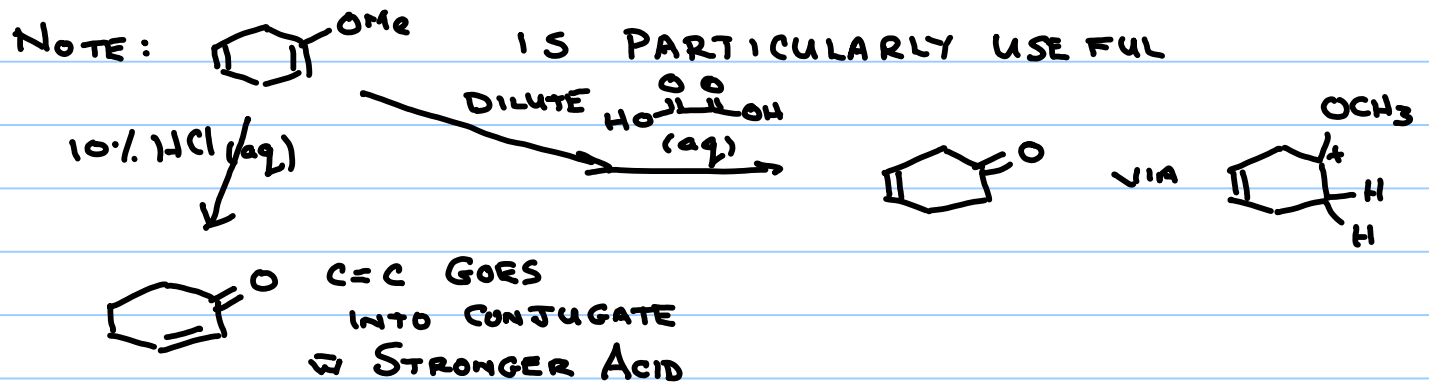 NOTE: OMe IS PARTICULARLY USEFUL
DILUTE HO O O OH
(aq)
10% HCl (aq)
O VIA OCH3
+
H
H
O C=C GOES
INTO CONJUGATE
w STRONGER ACID